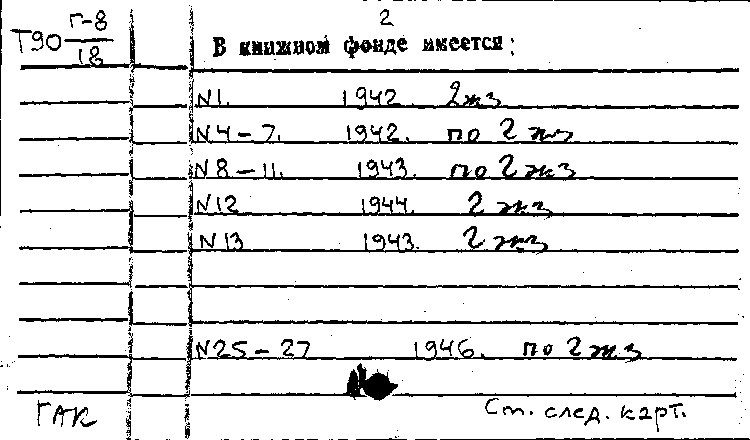 2
Т90 Г-8
18
В книжном фонде имеется:
N1. 1942 2 экз
N4-7. 1942. по 2 экз
N8-11. 1943. по 2 экз
N12 1944. 2 экз
N13 1943. 2 экз
N25-27 1946. по 2 экз
ГАК
См. след. карт.